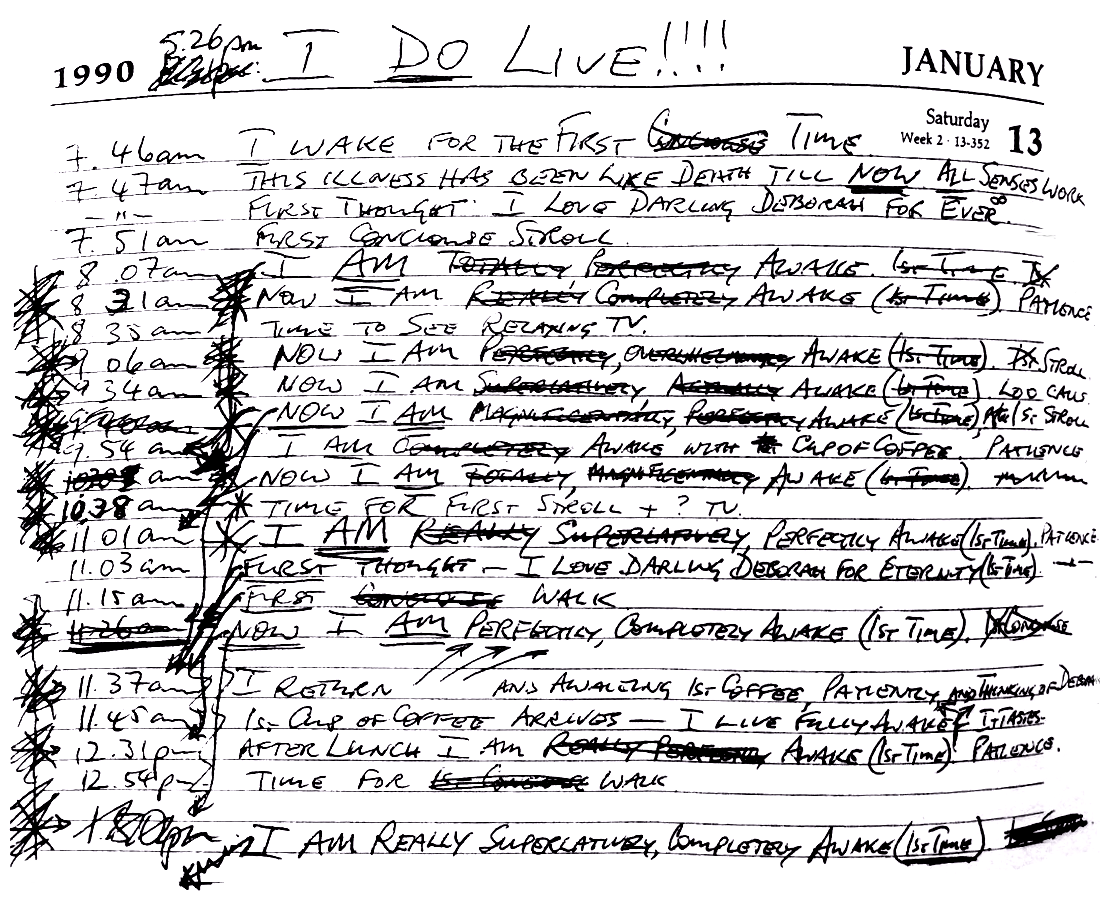 5.26pm I DO LIVE!!!!
1990 JANUARY
Saturday
Week 2 · 13-352 13
7.46am I WAKE FOR THE FIRST CONCIOUSE TIME.
7.47am THIS ILLNESS HAS BEEN LIKE DEATH TILL NOW ALL SENSES WORK
—"— FIRST THOUGHT: I LOVE DARLING DEBORAH FOR EVER∞.
7.51am FIRST CONCIOUSE STROLL.
8 07am I AM TOTALLY PERFECTLY AWAKE. 1ST TIME
8 31am NOW I AM REALLY COMPLETELY AWAKE (1ST TIME) PATIENCE
8 35am TIME TO SEE RELAXING TV.
9 06am NOW I AM PERFECTLY, OVERWHELMINGLY AWAKE (1ST TIME). 1ST STROLL
9 34am NOW I AM SUPERLATIVELY, ACTUALLY AWAKE (1ST TIME) LOO CALL
NOW I AM MAGNIFICENTLY, PERFECTLY AWAKE (1ST TIME), 1ST STROLL
9.54am I AM COMPLETELY AWAKE WITH CUP OF COFFEE. PATIENCE
am NOW I AM TOTALLY, MAGNIFICENTLY AWAKE (1ST TIME).
10.38am TIME FOR FIRST STROLL + ? TV.
11 01am I AM REALLY SUPERLATIVELY, PERFECTLY AWAKE (1ST TIME). PATIENCE
11.03am FIRST THOUGHT — I LOVE DARLING DEBORAH FOR ETERNITY (1ST TIME)
11.15am FIRST CONCIOUSE WALK
11.26am NOW I AM PERFECTLY, COMPLETELY AWAKE (1ST TIME).
11.37am I RETURN AND AWAITING 1ST COFFEE, PATIENTLY AND THINKING OF DEBORAH
11.45am 1ST CUP OF COFFEE ARRIVES — I LIVE FULLY AWAKE! IT TASTES
12.31pm AFTER LUNCH I AM REALLY PERFECTLY AWAKE (1ST TIME) PATIENCE.
12.54pm TIME FOR 1ST CONCIOUSE WALK
I AM REALLY SUPERLATIVELY, COMPLETELY AWAKE (1ST TIME)